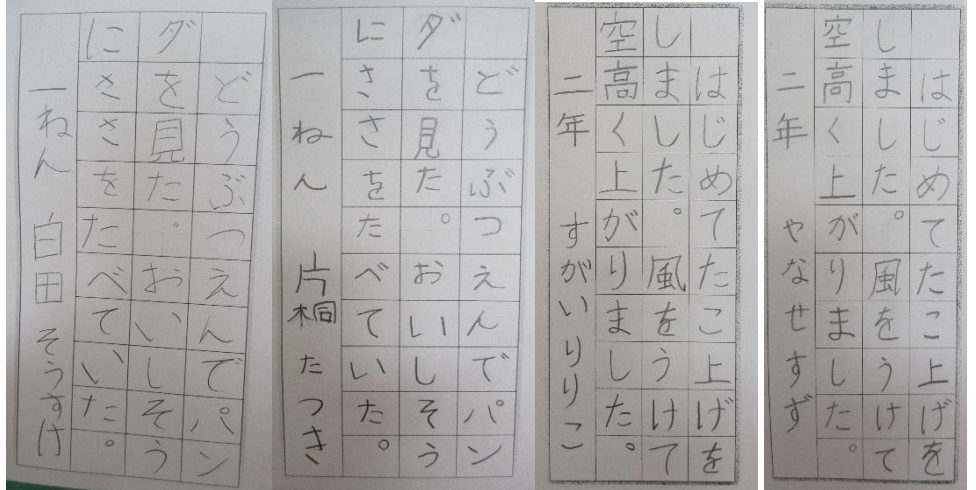 どうぶつえんでパン
ダを見た。おいしそう
にささをたべていた。
一ねん 白田 そうすけ
どうぶつえんでパン
ダを見た。おいしそう
にささをたべていた。
一ねん 片桐 たつき
はじめてたこ上げを
しました。風をうけて
空高く上がりました。
二年 すがいりりこ
はじめてたこ上げを
しました。風をうけて
空高く上がりました。
二年 やなせすず